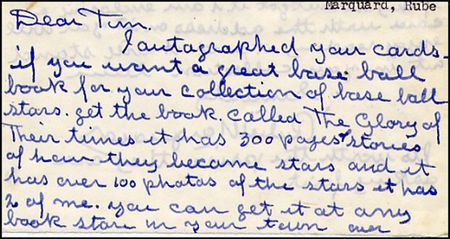 Marquard, Rube
Dear Tim.
I autographed your cards.
if you want a great base ball
book for your collection of base ball
stars. get the book. called The Glory of
Their times it has 300 pages of stories
of how they became stars and it
has over 100 photos of the stars it has
2 of me. you can get it at any
book store in your town over